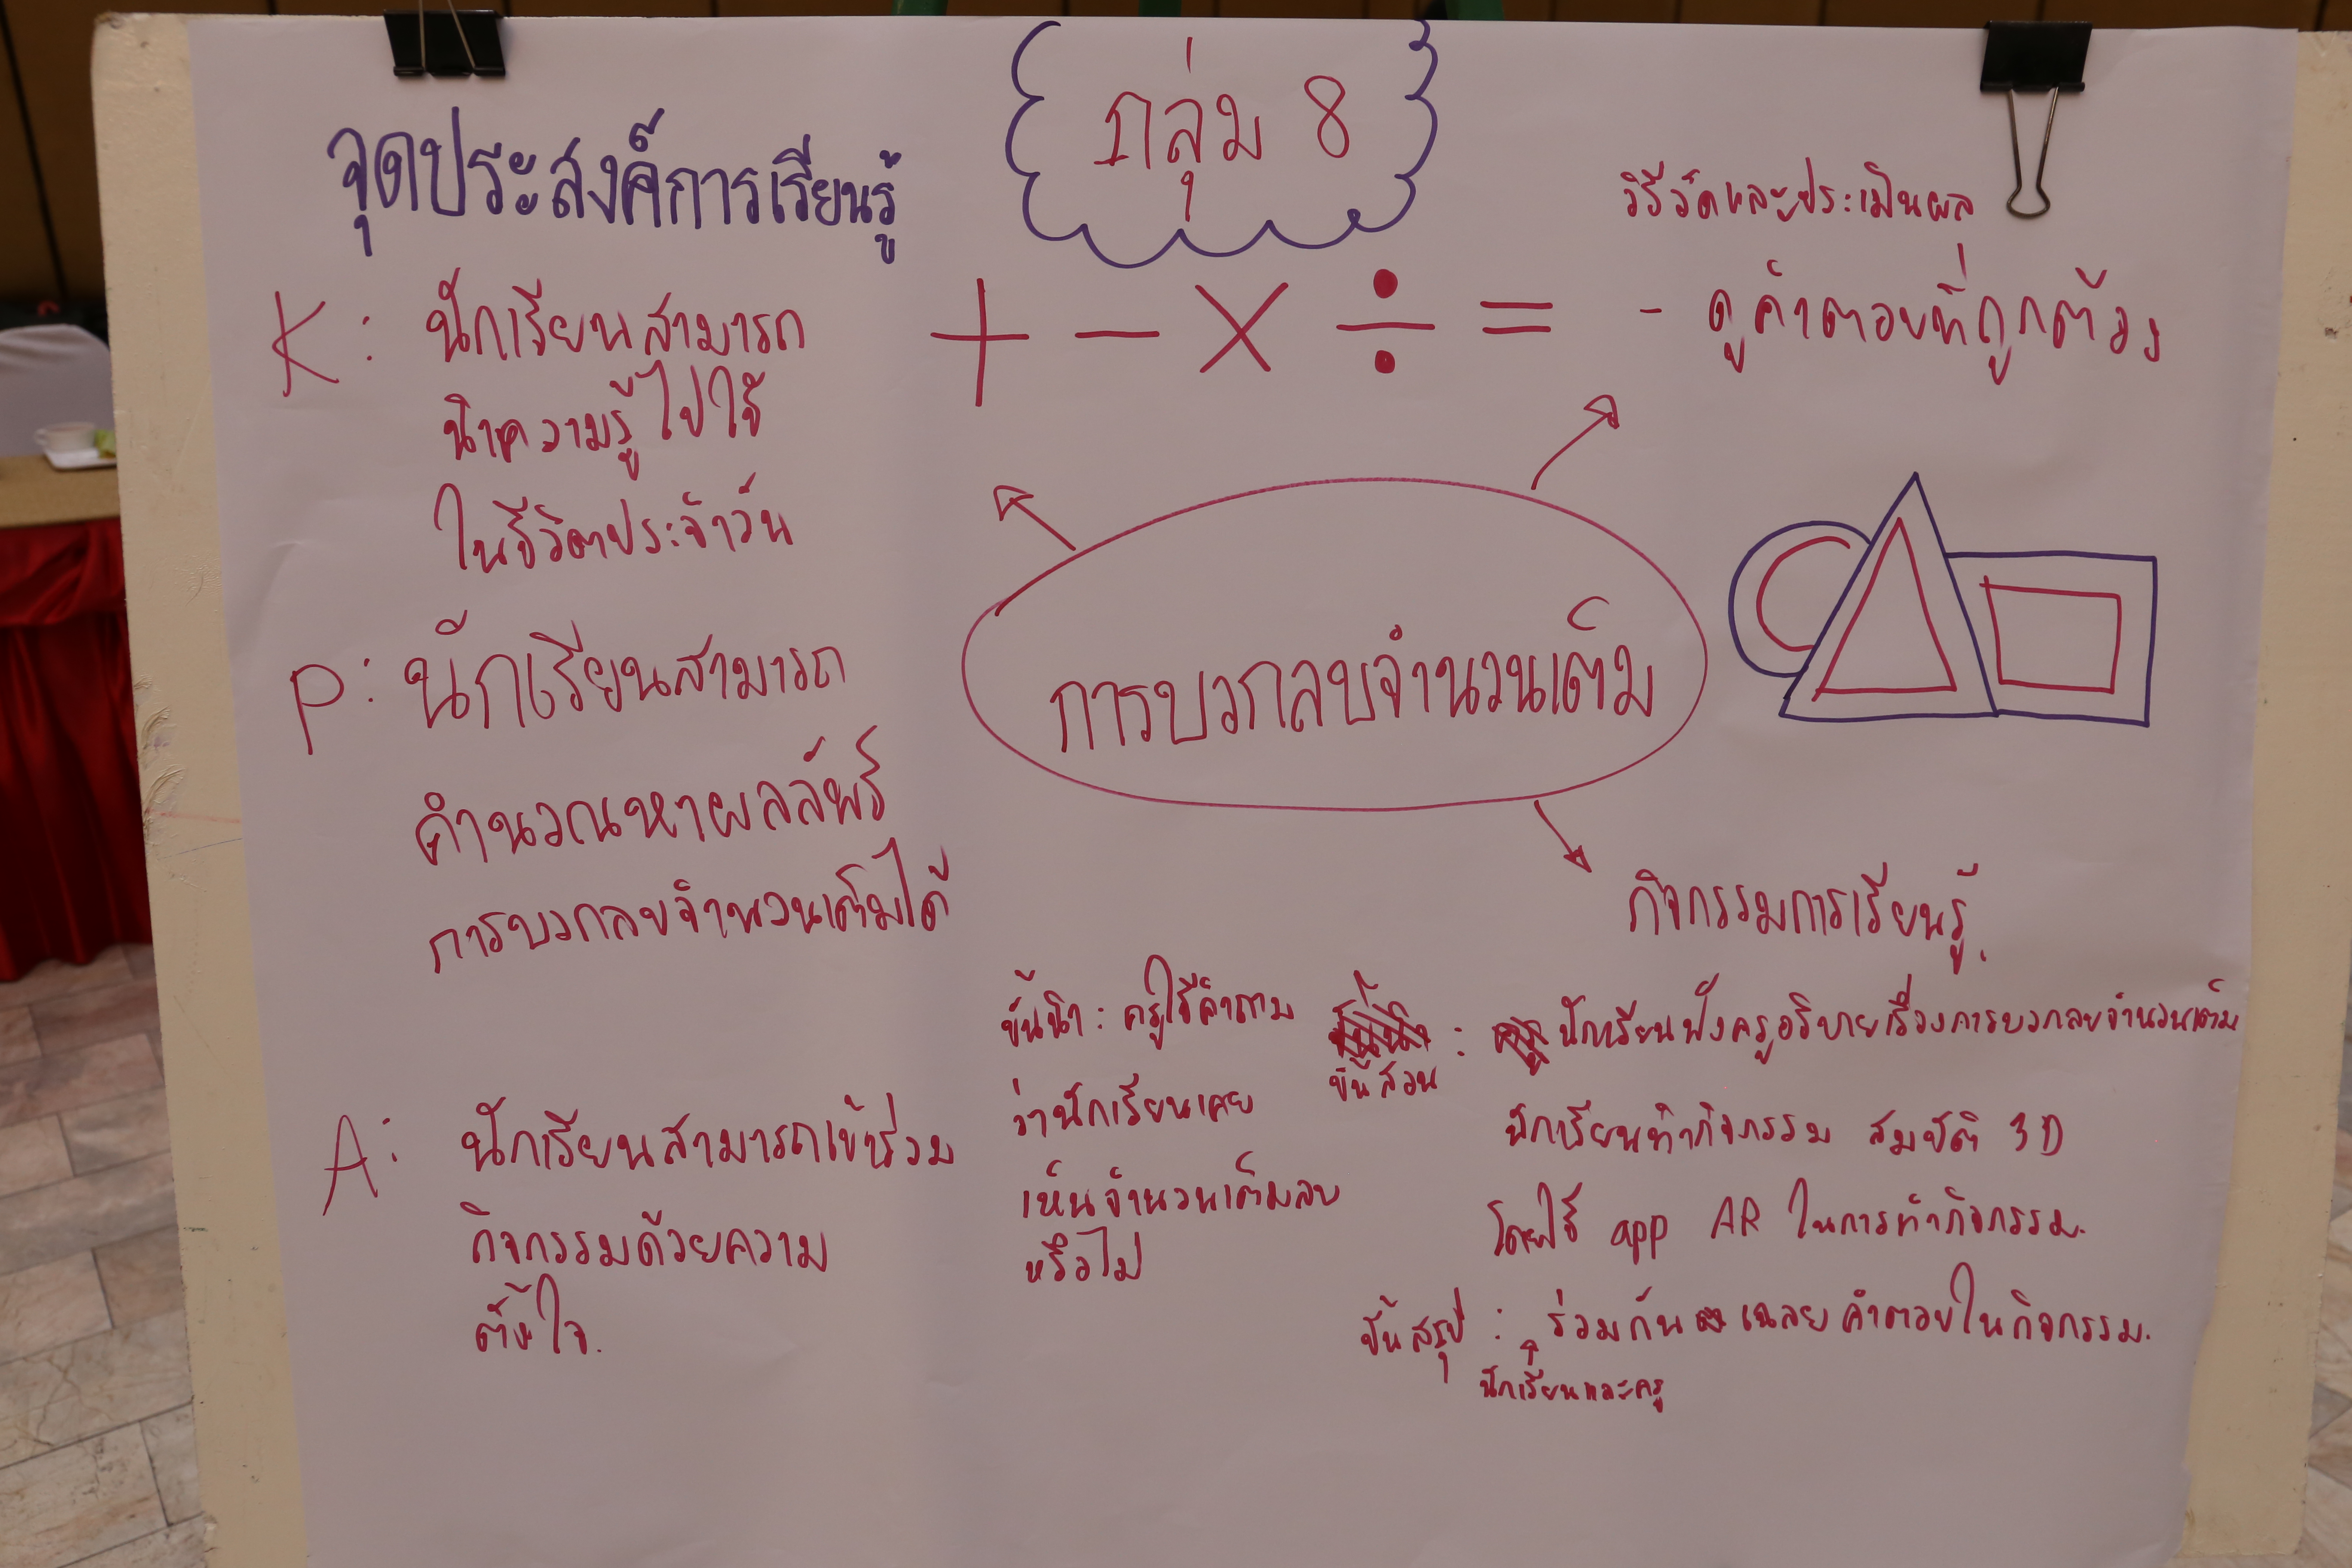 กลุ่ม 8
จุดประสงค์การเรียนรู้
K : นักเรียนสามารถ
นำความรู้ไปใช้
ในชีวิตประจำวัน
P : นักเรียนสามารถ
คำนวณหาผลลัพธ์
การบวกลบจำนวนเต็มได้
A : นักเรียนสามารถเข้าร่วม
กิจกรรมด้วยความ
ตั้งใจ.
+ − × ÷ =
วิธีวัดและประเมินผล
- ดูคำตอบที่ถูกต้อง
การบวกลบจำนวนเต็ม
กิจกรรมการเรียนรู้
ขั้นนำ : ครูใช้คำถาม
ว่านักเรียนเคย
เห็นจำนวนเต็มลบ
หรือไม่
ขั้นสอน : นักเรียนฟังครูอธิบายเรื่องการบวกลบจำนวนเต็ม
นักเรียนทำกิจกรรม สมบัติ 3D
โดยใช้ app AR ในการทำกิจกรรม.
ขั้นสรุป : ร่วมกัน เฉลยคำตอบในกิจกรรม.
นักเรียนและครู